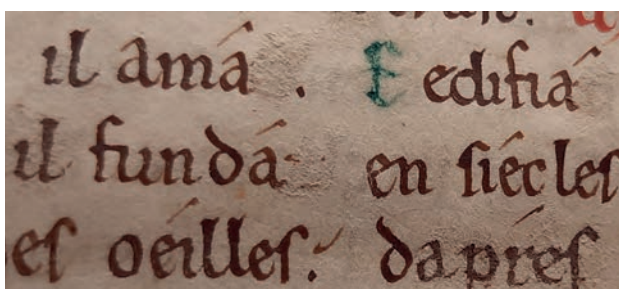 il amá . E edifiá
il fundá en ſiécleſ
eſ oéilleſ. dapréſ